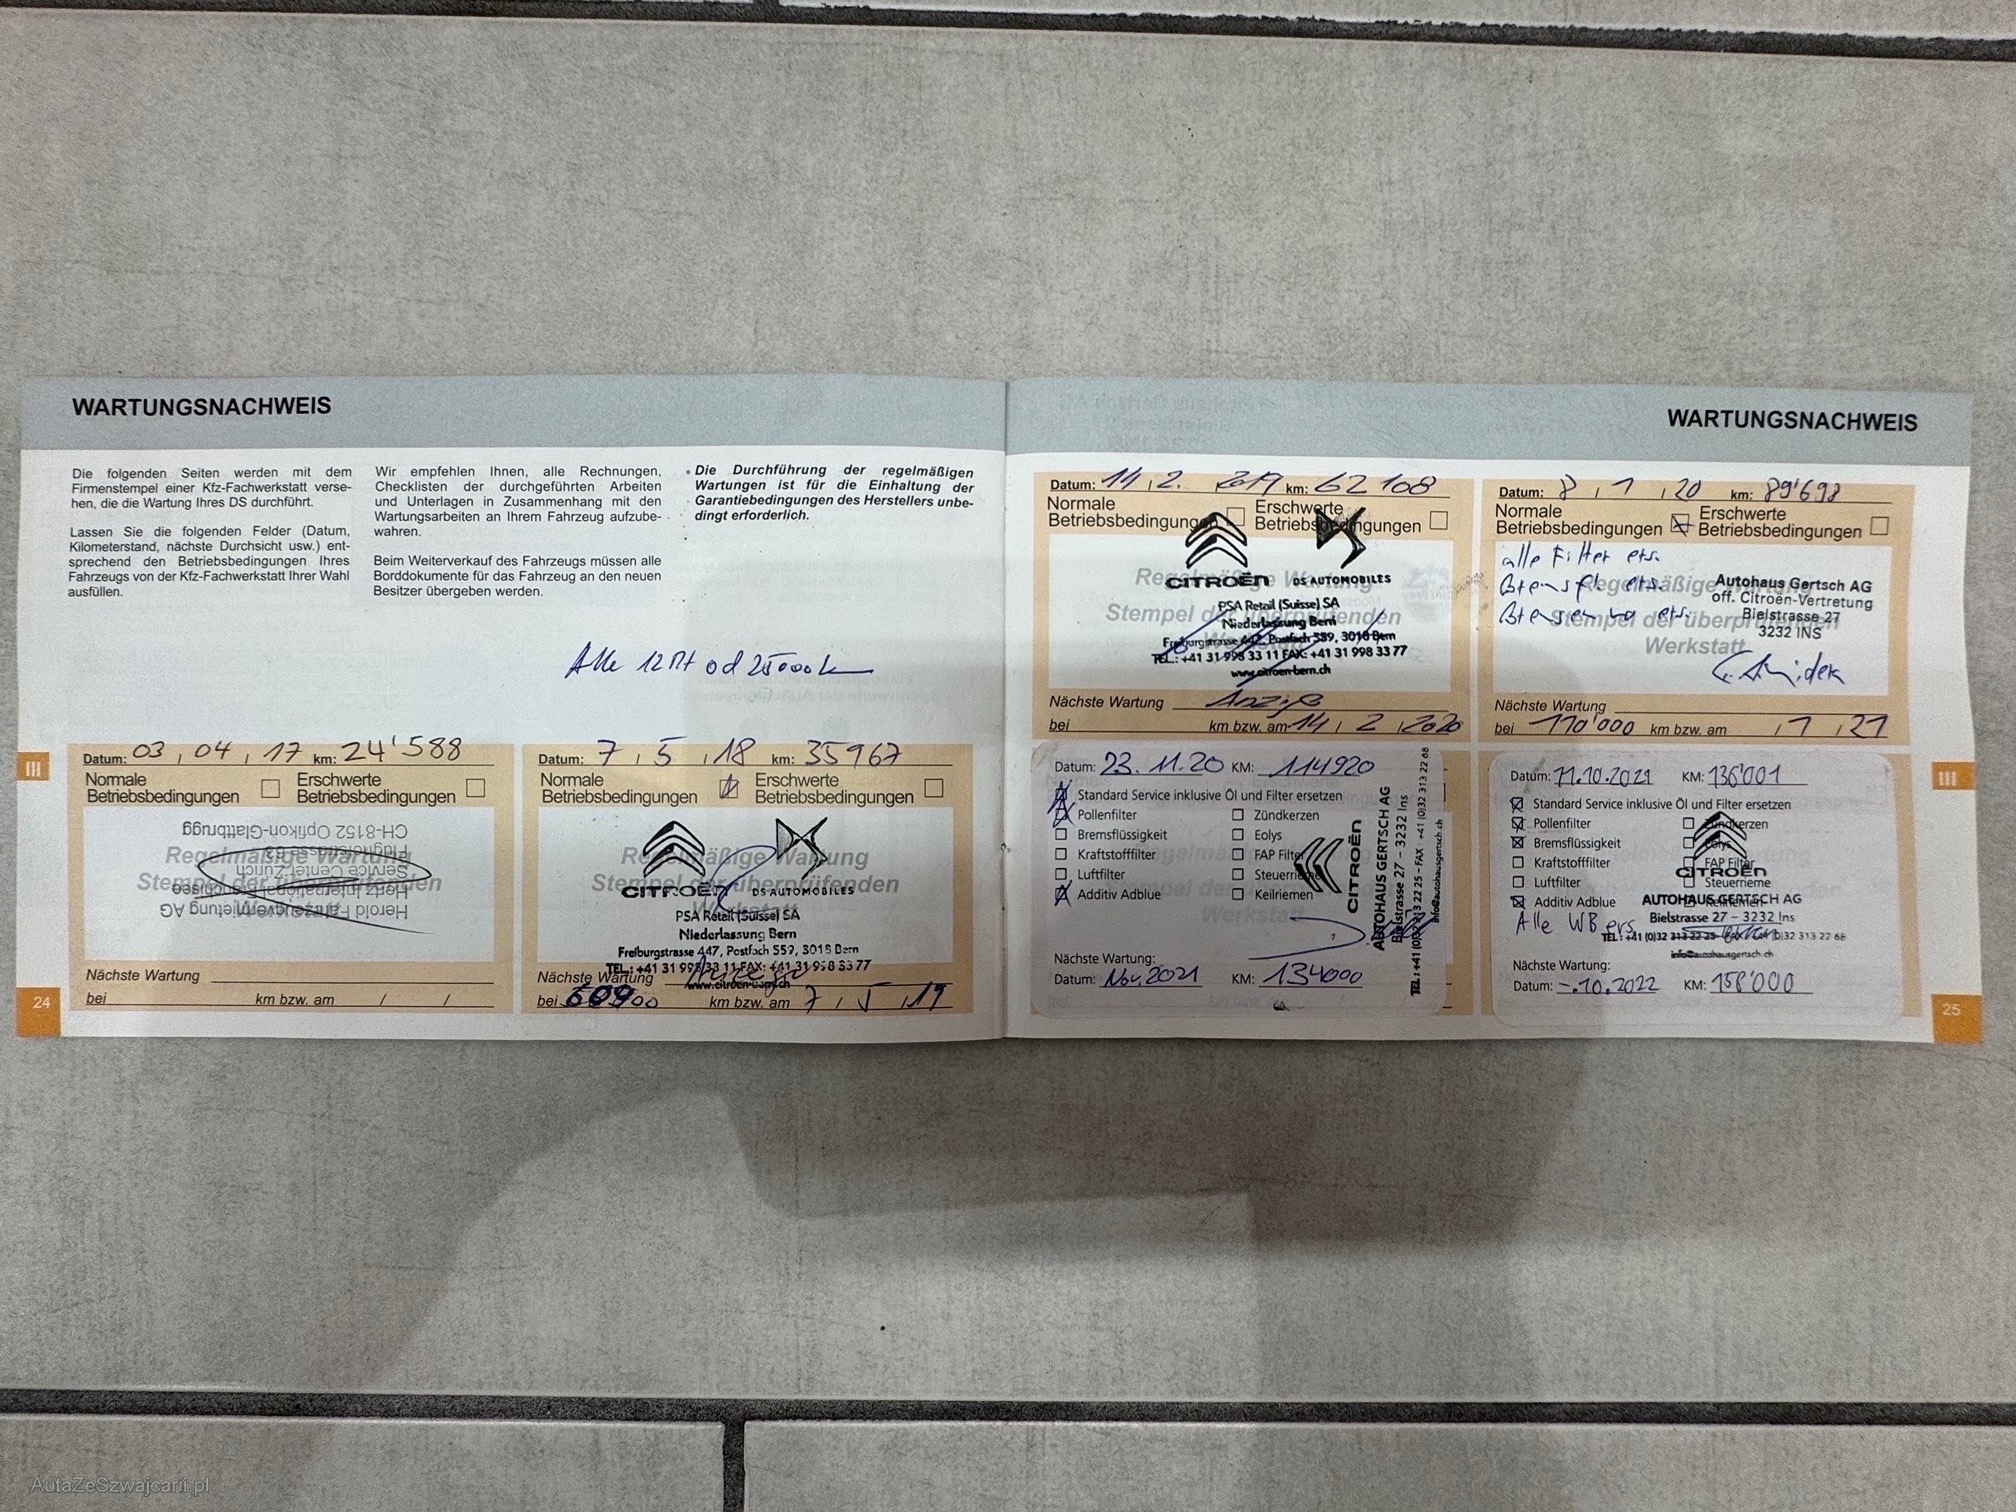 WARTUNGSNACHWEIS
Die folgenden Seiten werden mit dem
Firmenstempel einer Kfz-Fachwerkstatt verse-
hen, die die Wartung Ihres DS durchführt.
Lassen Sie die folgenden Felder (Datum,
Kilometerstand, nächste Durchsicht usw.) ent-
sprechend den Betriebsbedingungen Ihres
Fahrzeugs von der Kfz-Fachwerkstatt Ihrer Wahl
ausfüllen.
Wir empfehlen Ihnen, alle Rechnungen,
Checklisten der durchgeführten Arbeiten
und Unterlagen in Zusammenhang mit den
Wartungsarbeiten an Ihrem Fahrzeug aufzube-
wahren.
Beim Weiterverkauf des Fahrzeugs müssen alle
Borddokumente für das Fahrzeug an den neuen
Besitzer übergeben werden.
• Die Durchführung der regelmäßigen
Wartungen ist für die Einhaltung der
Garantiebedingungen des Herstellers unbe-
dingt erforderlich.
Alle 12 Mt od 25000 km
Datum: 03, 04, 17 km: 24'588
Normale Betriebsbedingungen
Erschwerte Betriebsbedingungen
Regelmäßige Wartung
Stempel der überprüfenden
Werkstatt
Herold Fahrzeugvermietung AG
Service Center Zürich
CH-8152 Opfikon-Glattbrugg
Nächste Wartung
bei km bzw. am / /
24
III
Datum: 7, 5, 18 km: 35967
Normale Betriebsbedingungen
Erschwerte Betriebsbedingungen
Regelmäßige Wartung
Stempel der überprüfenden
Werkstatt
CITROËN DS AUTOMOBILES
PSA Retail (Suisse) SA
Niederlassung Bern
Freiburgstrasse 447, Postfach 559, 3018 Bern
TEL.: +41 31 998 33 11 FAX: +41 31 998 33 77
www.citroen-bern.ch
Nächste Wartung
bei 60900 km bzw. am 7, 5, 19
WARTUNGSNACHWEIS
Datum: 14, 2. 2019 km: 62108
Normale Betriebsbedingungen
Erschwerte Betriebsbedingungen
Regelmäßige Wartung
Stempel der überprüfenden
CITROËN DS AUTOMOBILES
PSA Retail (Suisse) SA
Niederlassung Bern
Freiburgstrasse 447, Postfach 559, 3018 Bern
TEL.: +41 31 998 33 11 FAX: +41 31 998 33 77
www.citroen-bern.ch
Nächste Wartung Anzeige
bei km bzw. am 14, 2, 2020
Datum: 8, 1, 20 km: 89'698
Normale Betriebsbedingungen
Erschwerte Betriebsbedingungen
alle Filter ers.
Bremsfl. ers.
ers.
Regelmäßige Wartung
Stempel der überprüfenden
Werkstatt
Autohaus Gertsch AG
off. Citroën-Vertretung
Bielstrasse 27
3232 INS
Nächste Wartung
bei 110'000 km bzw. am , 1, 21
Datum: 23. 11. 20 KM: 114920
Standard Service inklusive Öl und Filter ersetzen
Pollenfilter Zündkerzen
Bremsflüssigkeit Eolys
Kraftstofffilter FAP Filter
Luftfilter Steuerrieme
Additiv Adblue Keilriemen
CITROËN
AUTOHAUS GERTSCH AG
Bielstrasse 27 – 3232 Ins
TEL.: +41 (0)32 313 22 25 - FAX - +41 (0)32 313 22 68
info@autohausgertsch.ch
Nächste Wartung:
Datum: Nov. 2021 KM: 134000
Datum: 11.10.2021 KM: 136'001
Standard Service inklusive Öl und Filter ersetzen
Pollenfilter Zündkerzen
Bremsflüssigkeit Eolys
Kraftstofffilter FAP Filter
Luftfilter Steuerrieme
Additiv Adblue Keilriemen
Alle WB ers.
CITROËN
AUTOHAUS GERTSCH AG
Bielstrasse 27 – 3232 Ins
TEL.: +41 (0)32 313 22 25 - FAX - +41 (0)32 313 22 68
info@autohausgertsch.ch
Nächste Wartung:
Datum: -.10.2022 KM: 158'000
III
25
AutaZeSzwajcarii.pl